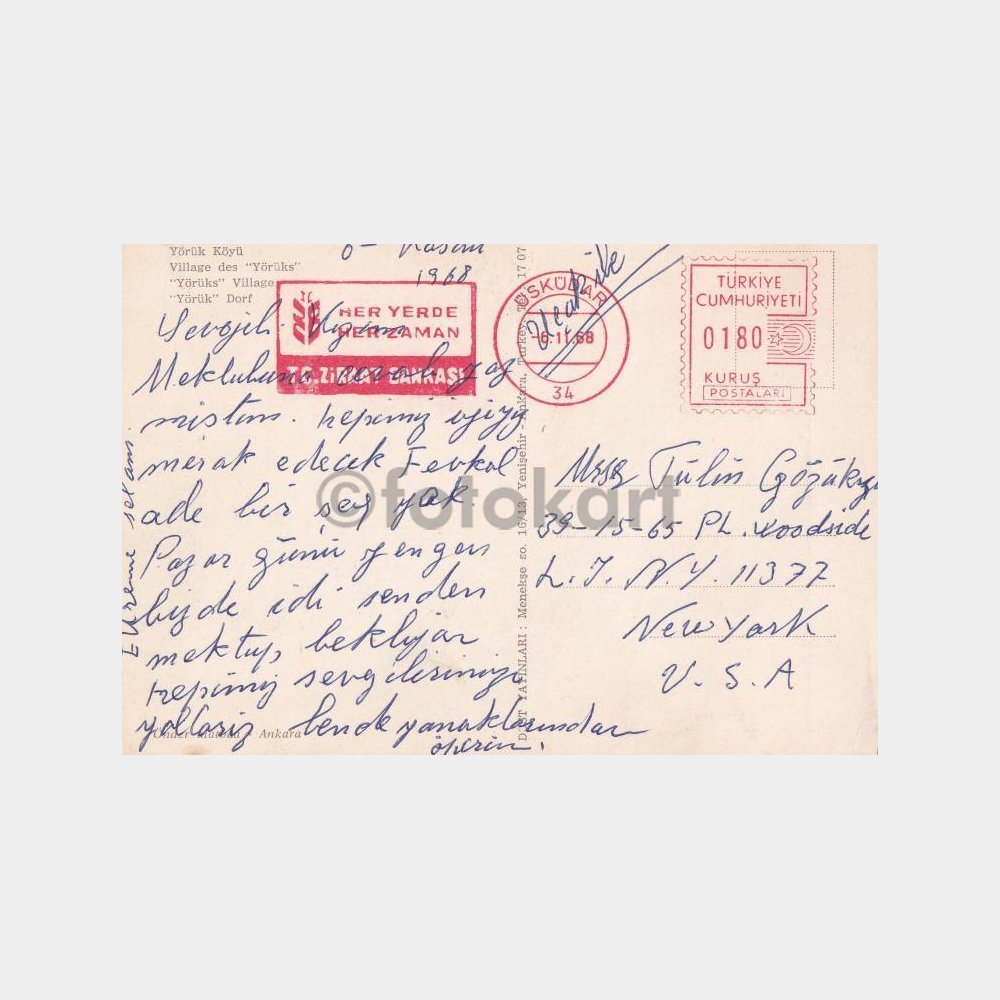 Yörük Köyü
Village des "Yörüks"
"Yörüks" Village
"Yörük" Dorf
Kasım
1968
HER YERDE
HER ZAMAN
T.C. ZİRAAT BANKASI
ÜSKÜDAR
-6.11.68
34
Uçak ile
TÜRKİYE
CUMHURİYETİ
0180
KURUŞ
POSTALARI
Sevgili
Mektubuna cevab yaz
mıştım. hepimiz iyiyiz
merak edecek Fevkal
ade bir şey yok.
Pazar günü yengen
bizde idi senden
mektup bekliyor
hepimiz sevgilerimizi
yollarız bende yanaklarından
öperim.
Ekreme selam.
Önder Ankara
DOST YAYINLARI : Menekşe so. 16/13, Yenişehir - Ankara, Turkey, 17 07
©fotokart
Tülin
39-15-65 PL. Woodside
L. I. N.Y. 11377
New York
U. S. A